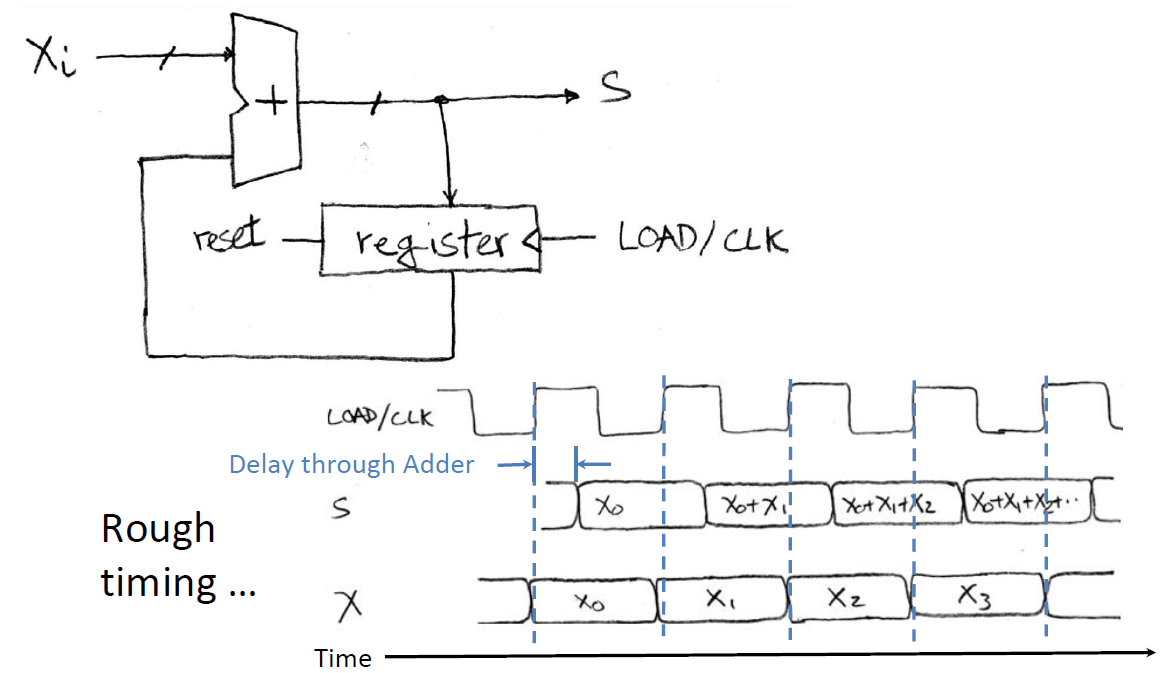 Xi
+
S
reset
register
LOAD/CLK
LOAD/CLK
Delay through Adder
S
X₀
X₀+X₁
X₀+X₁+X₂
X₀+X₁+X₂+..
Rough
timing ...
X
X₀
X₁
X₂
X₃
Time